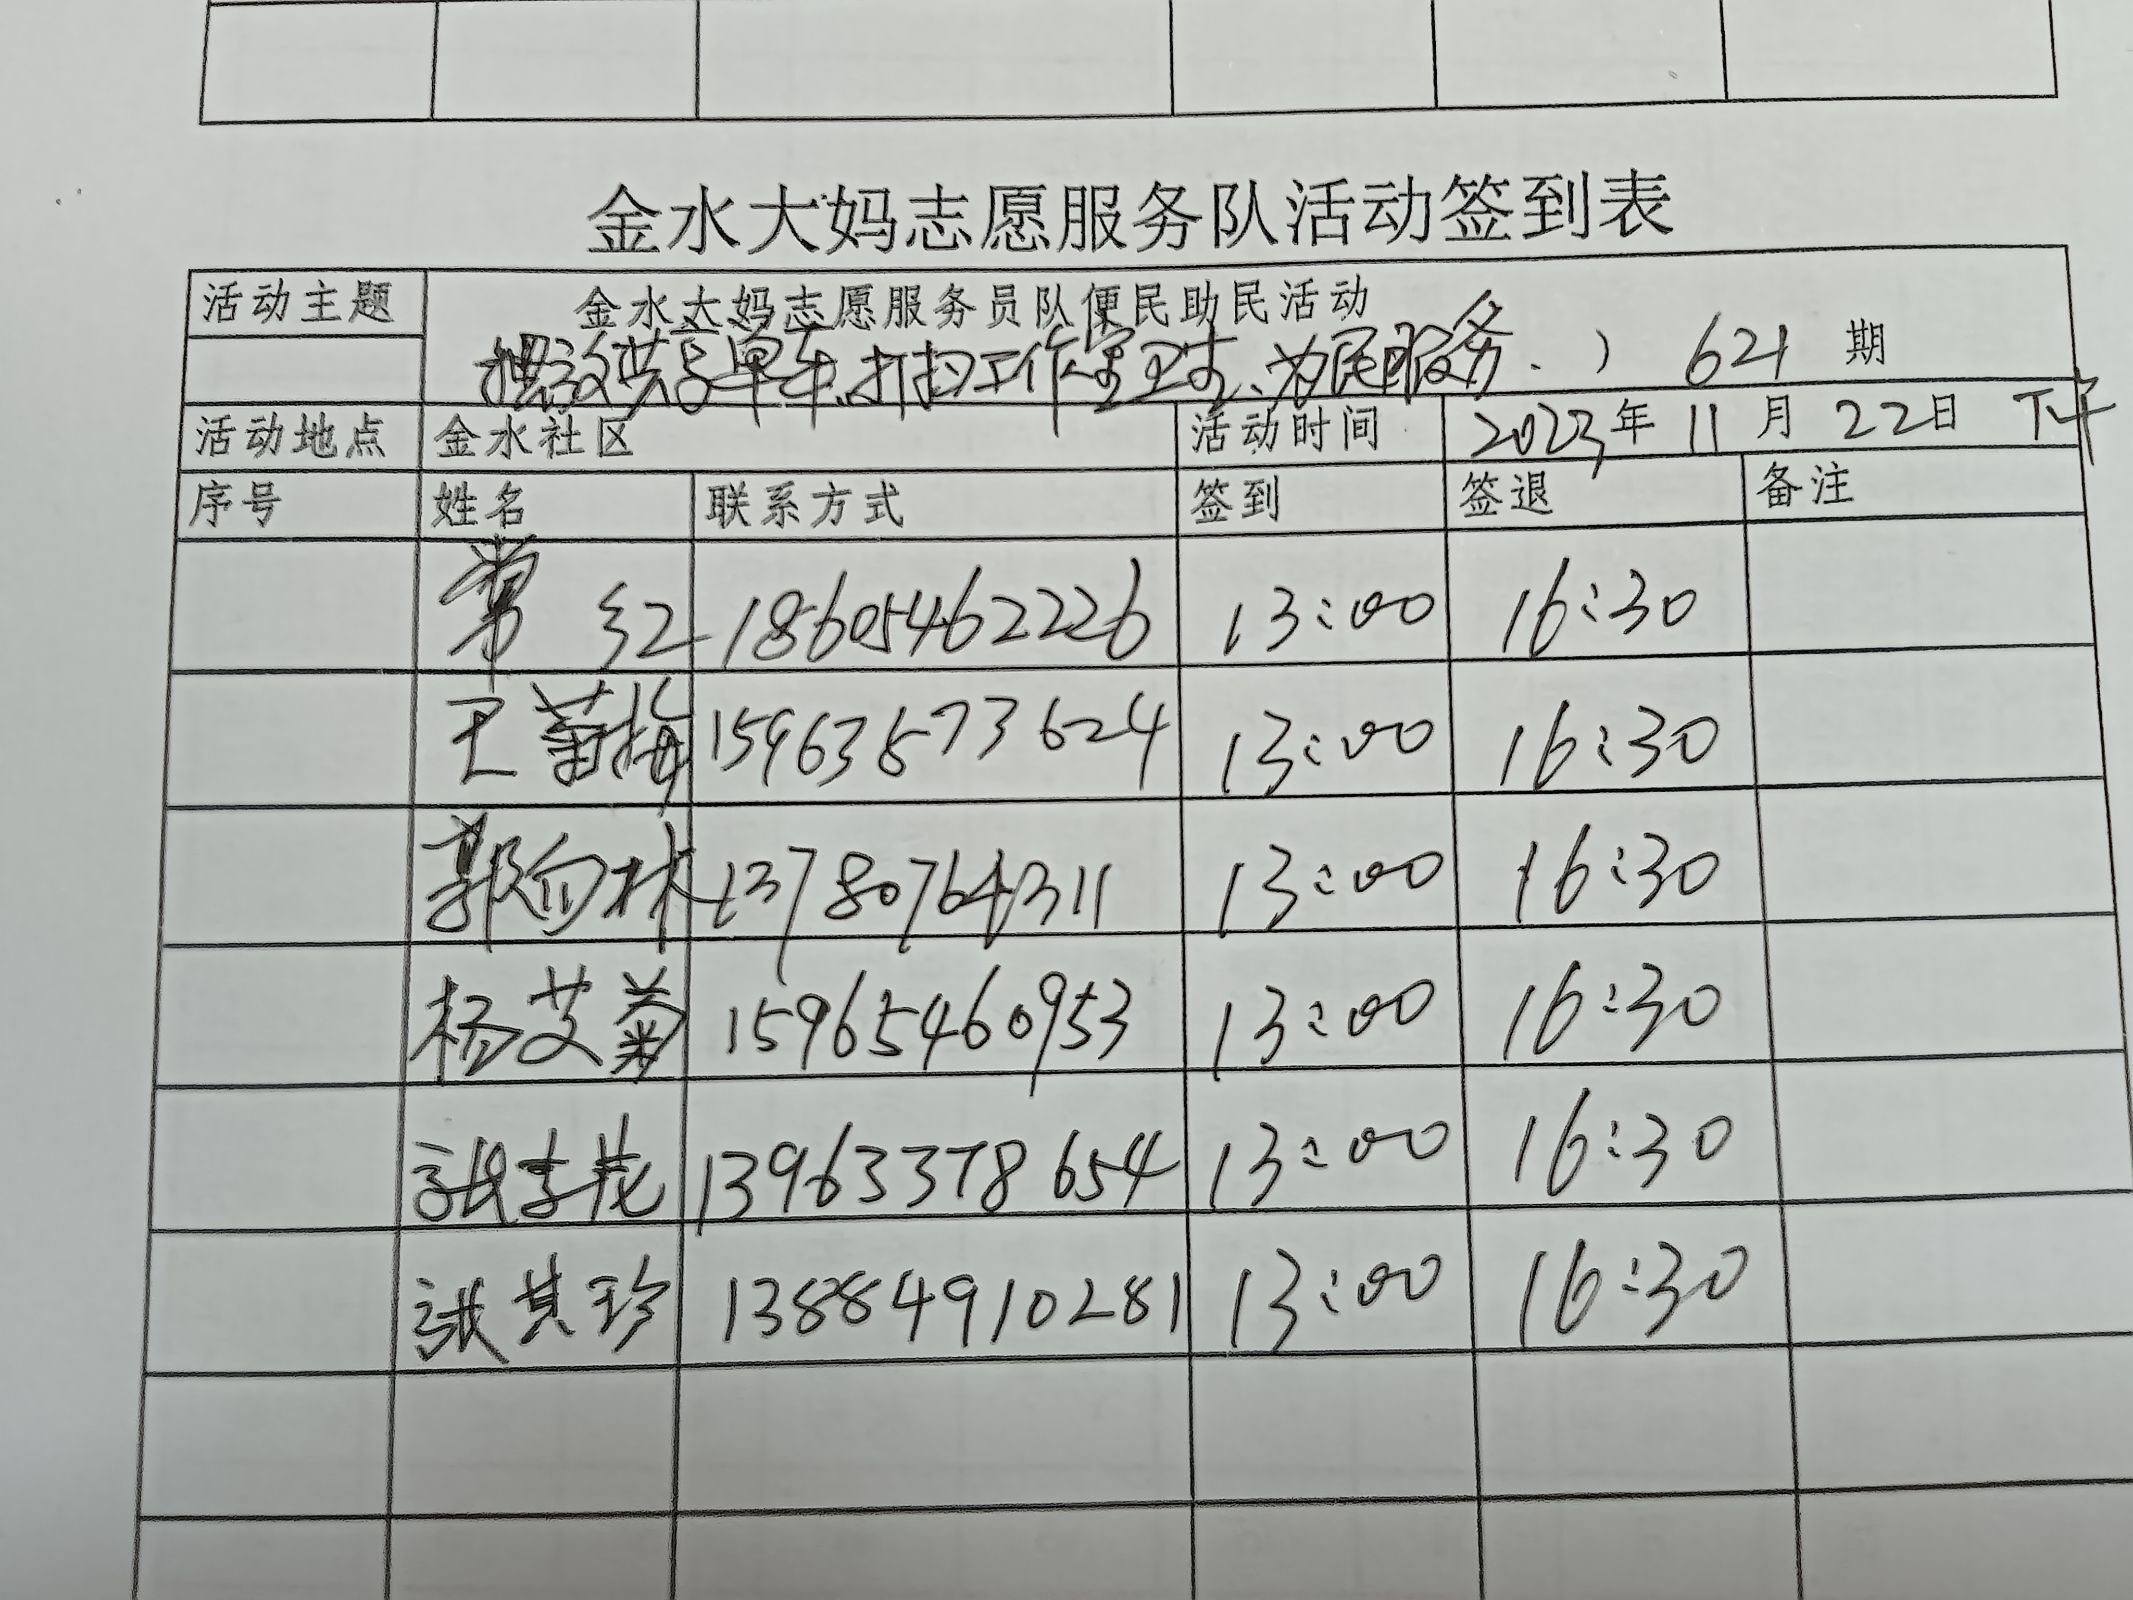 金水大妈志愿服务队活动签到表
活动主题 金水大妈志愿服务员队便民助民活动
摆放共享单车、打扫工作室卫生、为民服务.） 621 期
活动地点 金水社区 活动时间 2023年 11 月 22日 下午
序号 姓名 联系方式 签到 签退 备注
常 红 18605462226 13:00 16:30
王菊梅 15963873624 13:00 16:30
郭向林 13780764311 13:00 16:30
杨艾菊 15965460953 13:00 16:30
张李花 13963378654 13:00 16:30
张其珍 13884910281 13:00 16:30